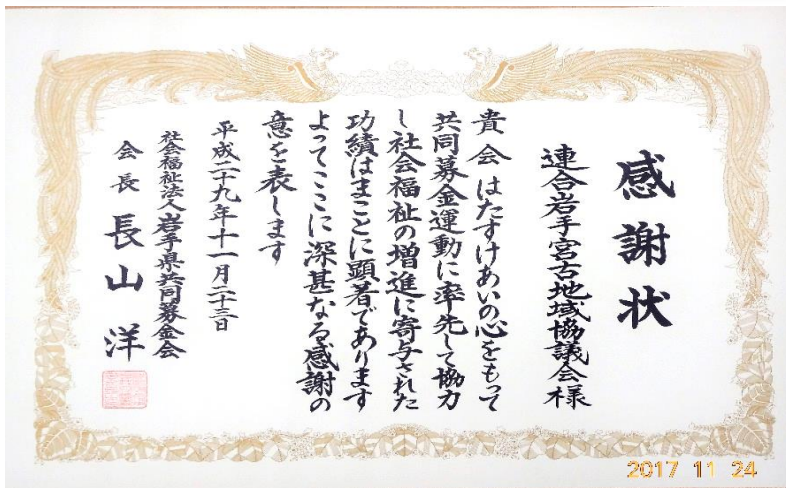 感謝状
連合岩手宮古地域協議会様
貴会はたすけあいの心をもって
共同募金運動に率先して協力
し社会福祉の増進に寄与された
功績はまことに顕著であります
よってここに深甚なる感謝の
意を表します
平成二十九年十一月二十三日
社会福祉法人岩手県共同募金会
会長 長山洋
2017 11 24